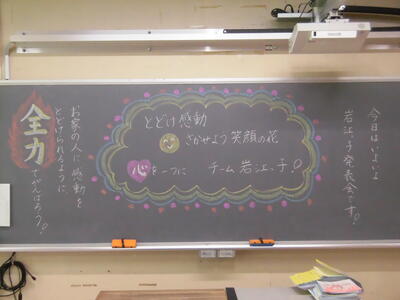 今日はいよいよ
岩江っ子発表会です!
とどけ感動
さかせよう笑顔の花
心を一つに チーム岩江っ子!
お家の人に感動を
とどけられるように、
全力
でがんばろう!